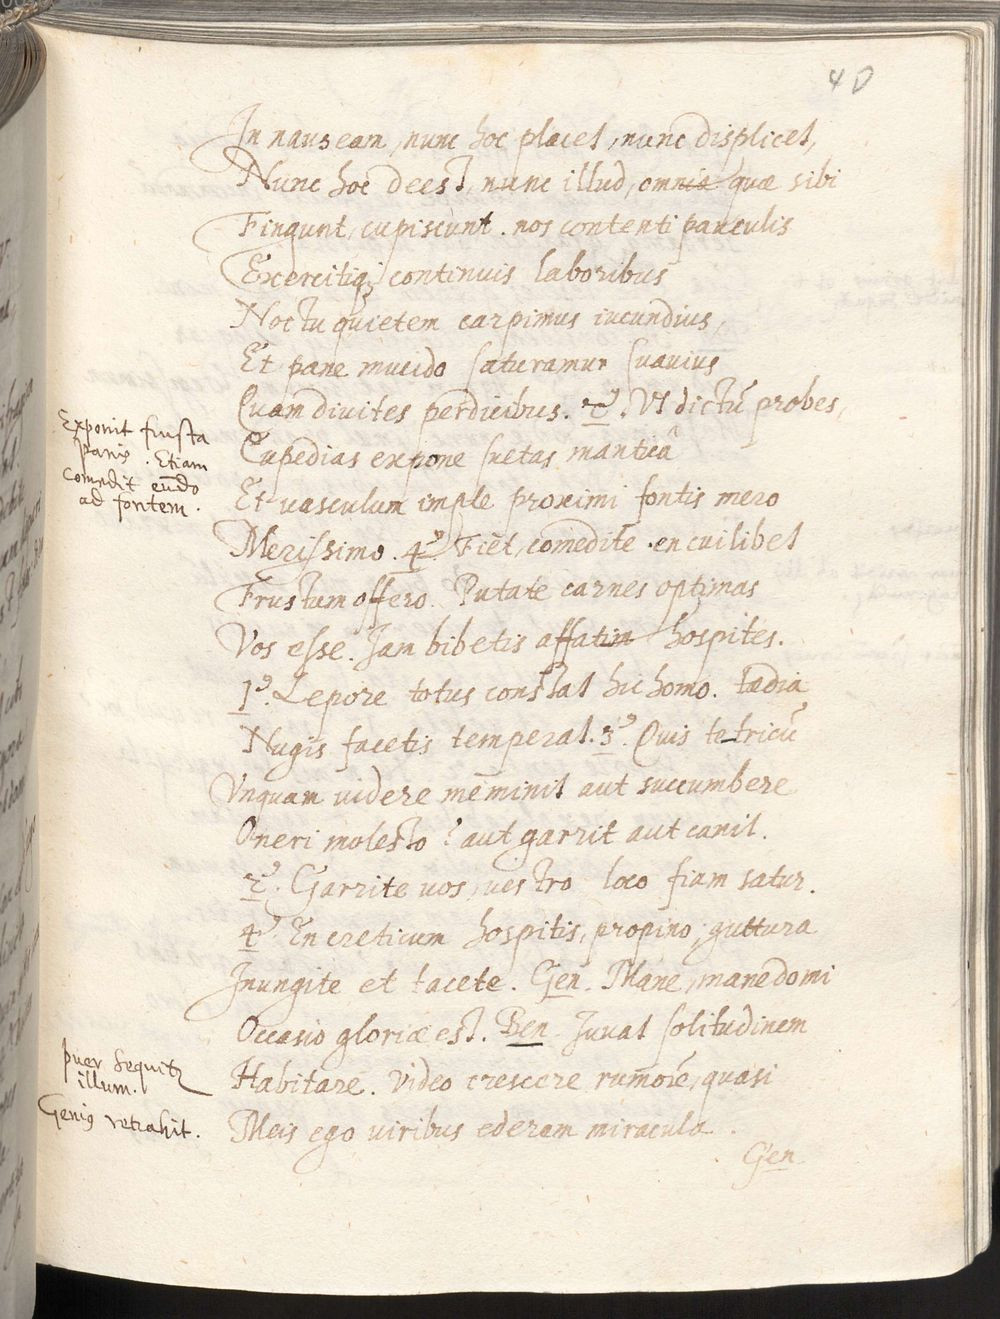 40
In nauseam, nunc hoc placet, nunc displicet,
Nunc hoc deest, nunc illud, omnia quæ sibi
Fingunt, cupiscunt. nos contenti pauculis
Exercitiq; continuis laboribus
Noctu quietem carpimus iucundius,
Et pane mucido saturamur suauius
Quam diuites perdicibus. 2.⁹ Vt dictū probes,
Cupedias expone suetas manticâ
Et vasculum imple proximi fontis mero
Merissimo. 4⁹ Fiēt, comedite. en cuilibet
Frustum offero. Putate carnes optimas
Vos esse. Jam bibetis affatim hospites.
1⁹. Lepore totus constat hic homo. tædia
Nugis facetis temperat. 3⁹. Quis tetricū
Vnquam uidere meminit aut succumbere
Oneri molesto? aut garrit aut canit.
2⁹. Garrite uos, uestro loco fiam satur.
4⁹. En creticum hospitis, propino, guttura
Inungite et tacete. Gen. Mane, mane domi
Occasio gloriæ est. Ben. Juuat solitudinem
Habitare. Video crescere rumorē, quasi
Meis ego uiribus ederem miracula.
Gen
Exponit frusta
panis. Etiam
comedit eūdo
ad fontem.
puer sequitr
illum.
Geni9 retrahit.